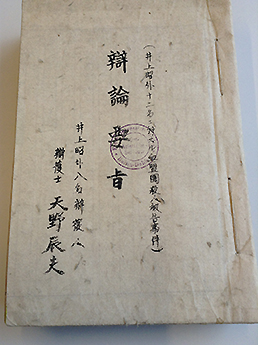 (井上昭外十三名ニ対スル血盟團殺人被告事件)
辯論要旨
井上昭外八名辯護人
辯護士 天野辰夫